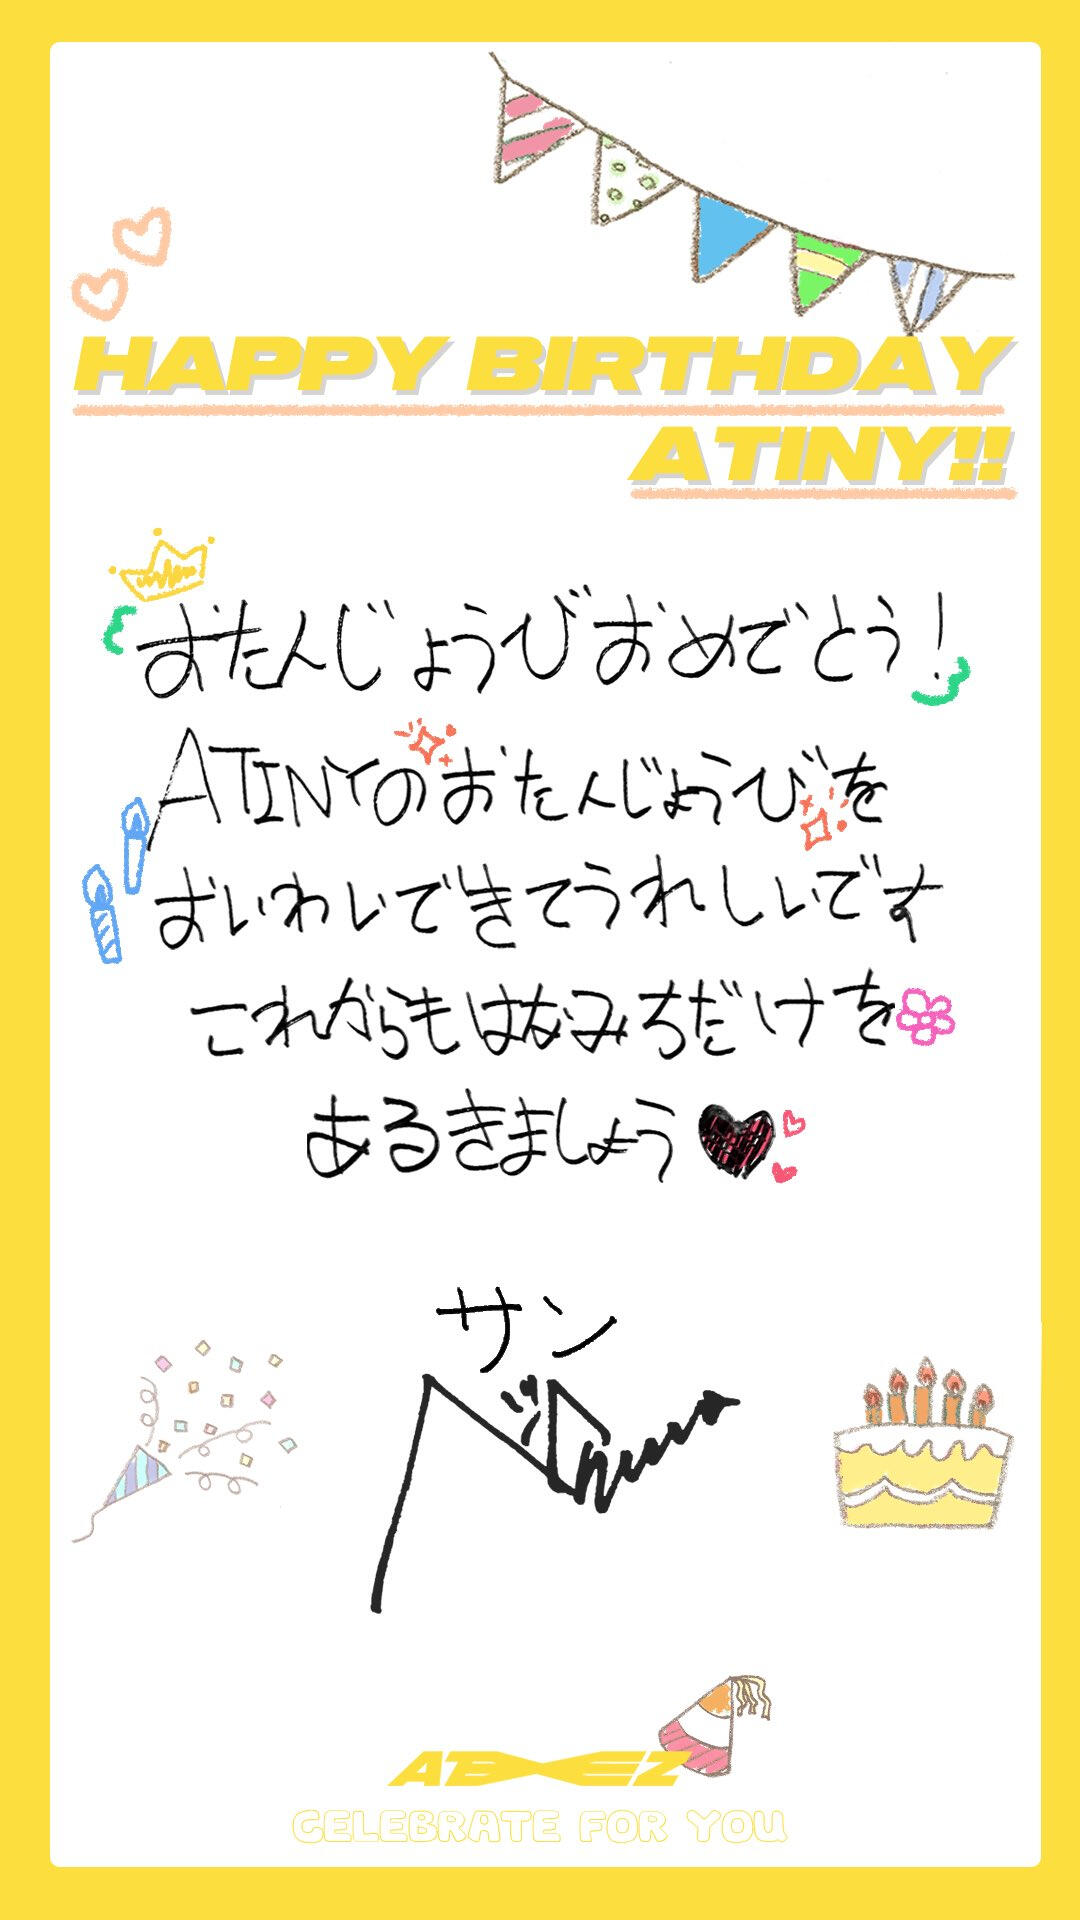 HAPPY BIRTHDAY
ATINY!!
おたんじょうびおめでとう!
ATINYのおたんじょうびを
おいわいできてうれしいです
これからもはなみちだけを
あるきましょう
サン
CELEBRATE FOR YOU